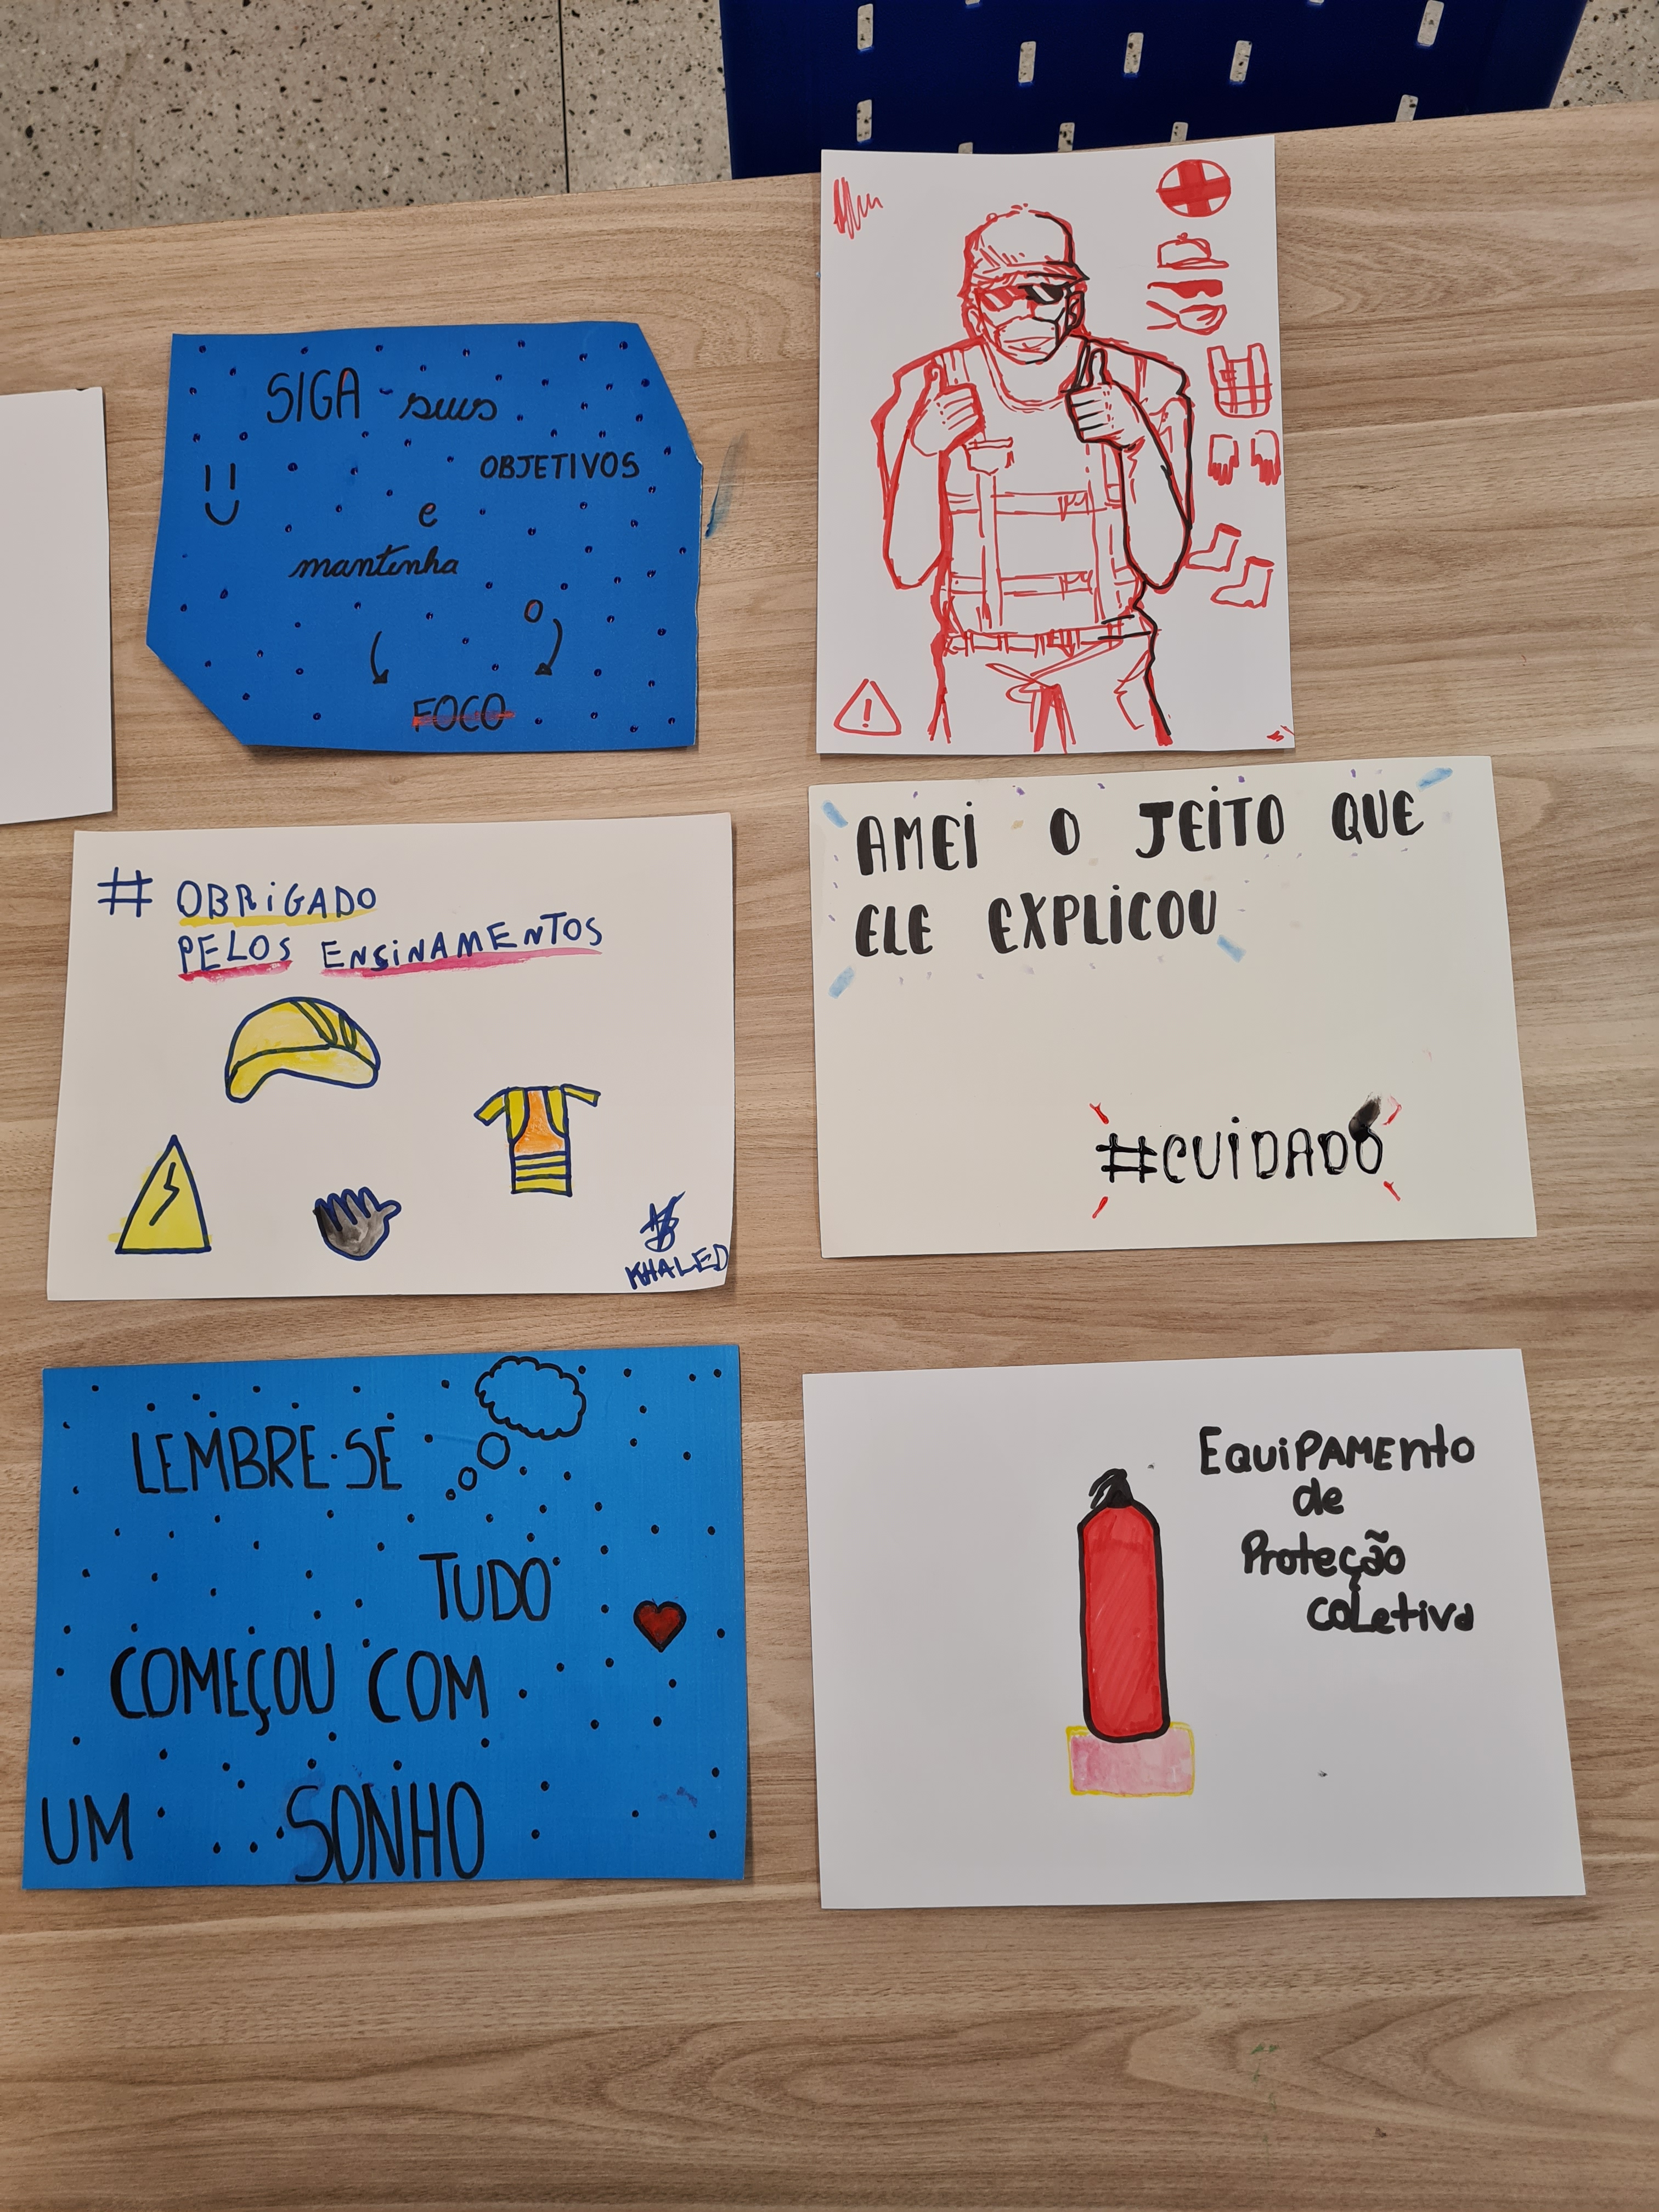 SIGA suus
OBJETIVOS
e
mantenha
o
FOCO
# OBRIGADO
PELOS ENSINAMENTOS
KHALED
AMEI O JEITO QUE
ELE EXPLICOU
#CUIDADO
LEMBRE-SE
TUDO
COMEÇOU COM
UM SONHO
EQUIPAMENTO
de
Proteção
coLetiva